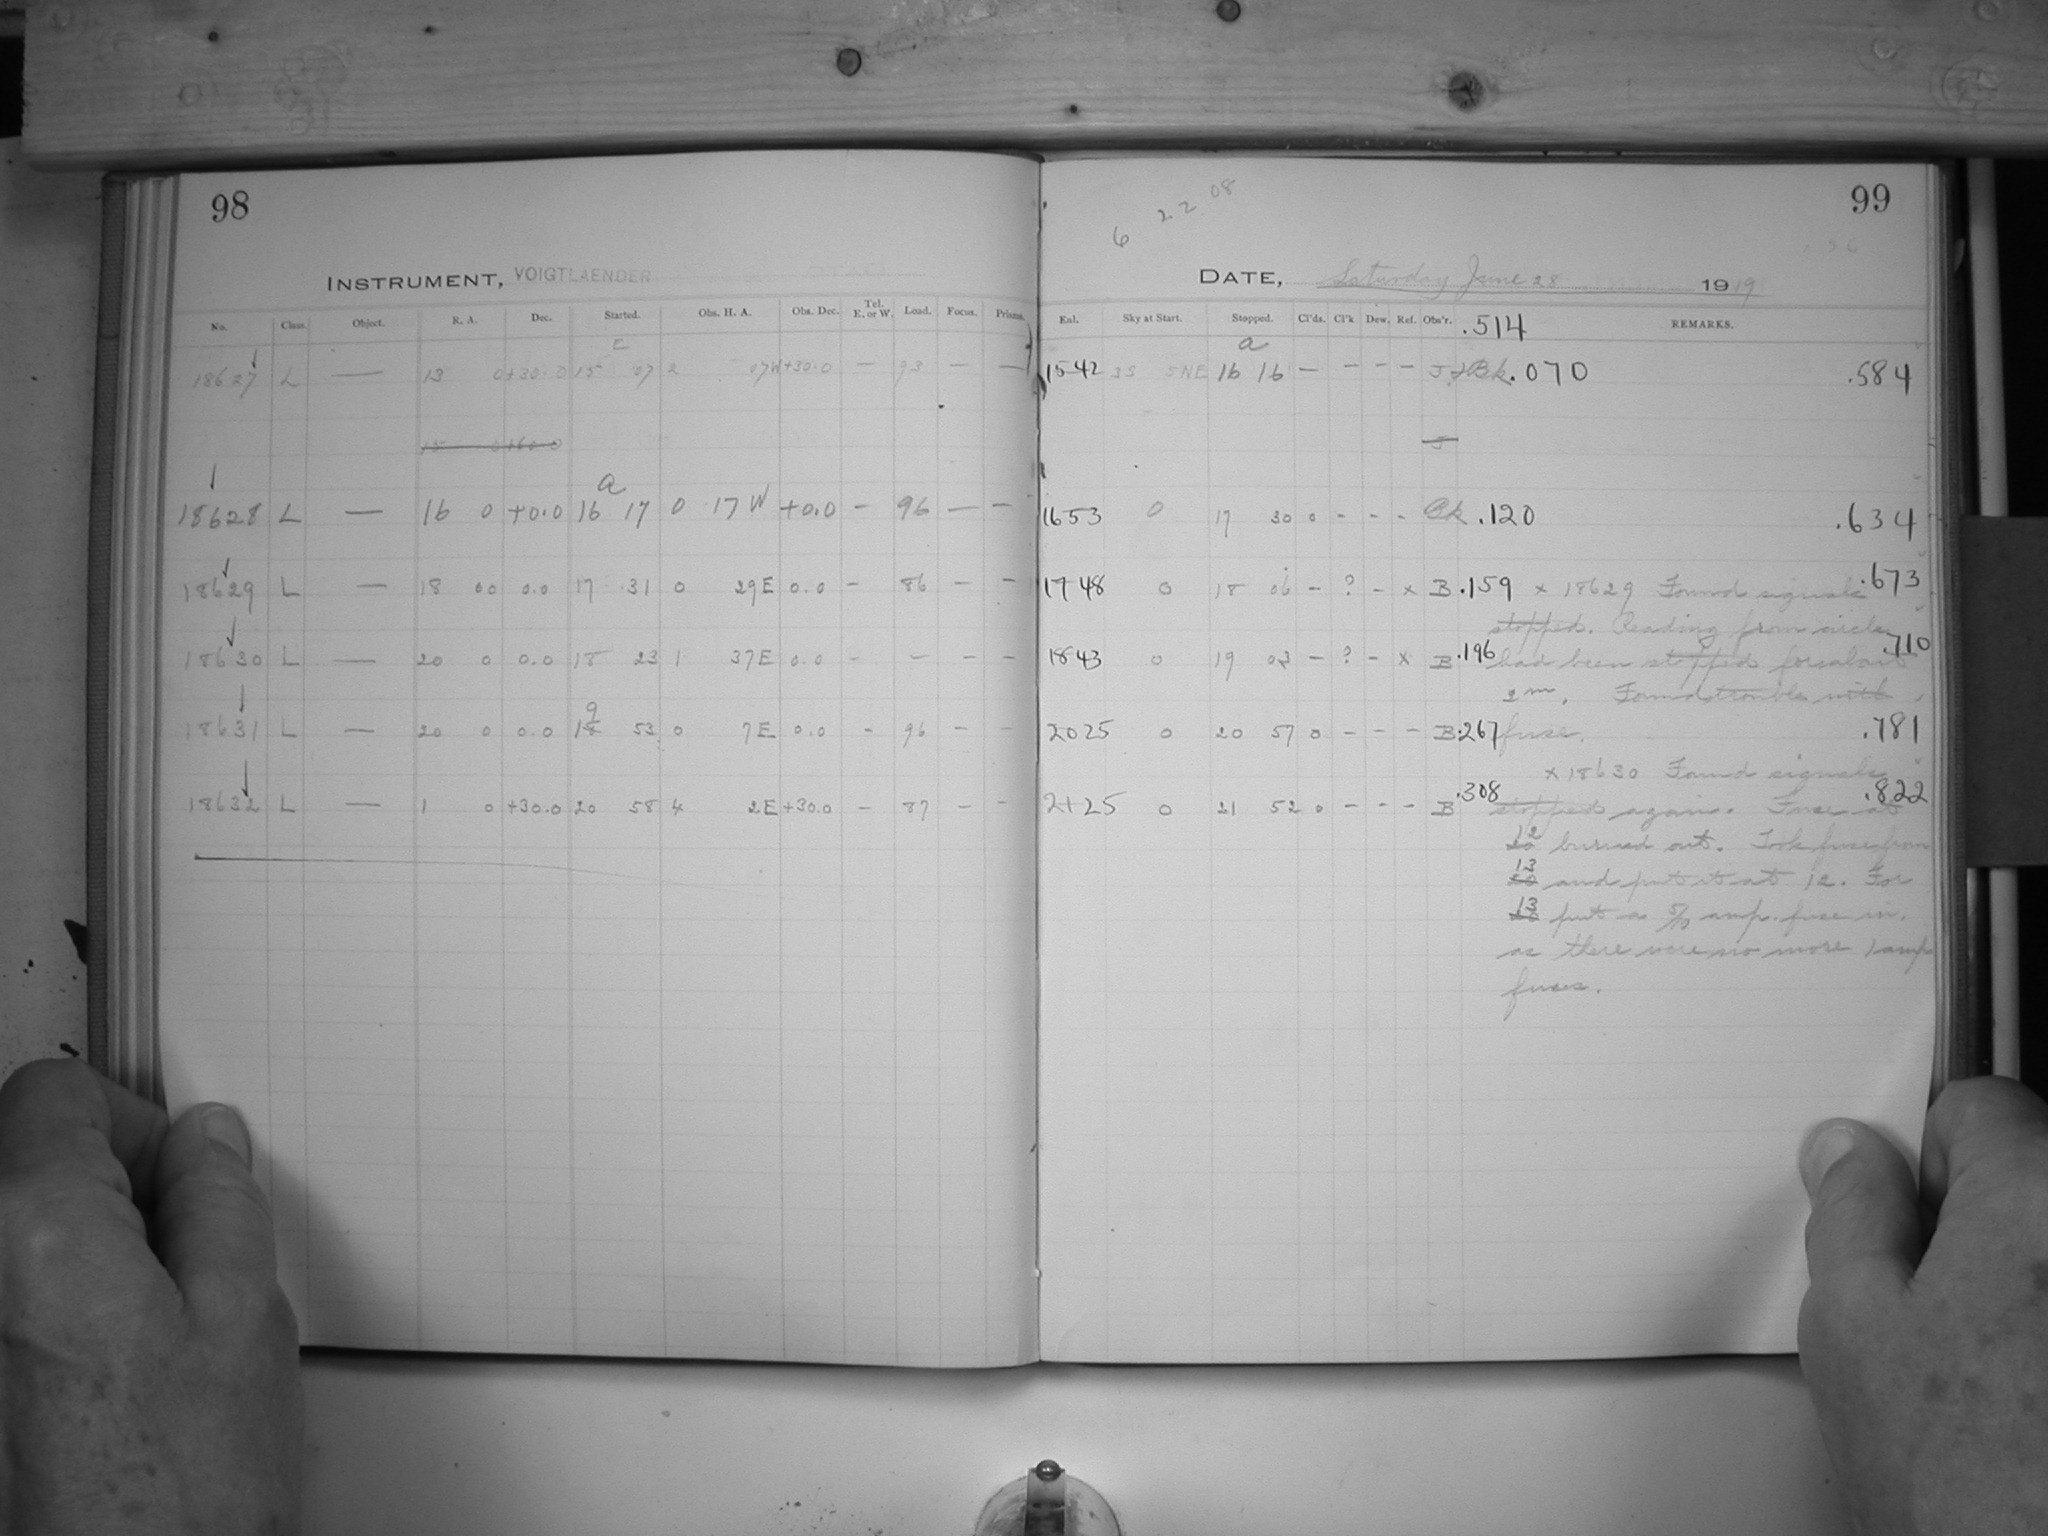 98
INSTRUMENT, VOIGTLAENDER
No. Class. Object. R. A. Dec. Started. Obs. H. A. Obs. Dec. Tel. E. or W. Load. Focus. Prisms.
18627 L — 13 0 +30.0 15 07 2 07W +30.0 — 93 — —
15 0 +60.0
a
18628 L — 16 0 +0.0 16 17 0 17W +0.0 — 96 — —
18629 L — 18 00 0.0 17 31 0 29E 0.0 - 86 - -
18630 L — 20 0 0.0 18 23 1 37E 0.0 - - - -
9
18631 L — 20 0 0.0 18 53 0 7E 0.0 - 96 - -
18632 L — 1 0 +30.0 20 58 4 2E +30.0 - 87 - -
6 22 08
99
DATE, Saturday June 28 1919
Eal. Sky at Start. Stopped. Cl'ds. Cl'k Dew. Ref. Obs'r. .514 REMARKS.
a
1542 3S 5NE 16 16 — - - - .070 .584
J
1653 0 17 30 0 - - - Ck .120 .634
1748 0 18 06 - ? - x B .159 x 18629 Found signals .673
stopped. Reading from circle
1843 0 19 03 - ? - x B .196 had been stopped for about .710
2m. Found trouble with
2025 0 20 57 0 - - - B .267 fuse. .781
x 18630 Found signals
2125 0 21 52 0 - - - B .308 stopped again. Fuse at .822
12 burned out. Took fuse from
13 and put it at 12. For
13 put a 5/10 amp. fuse in.
as there were no more 1 amp
fuses.